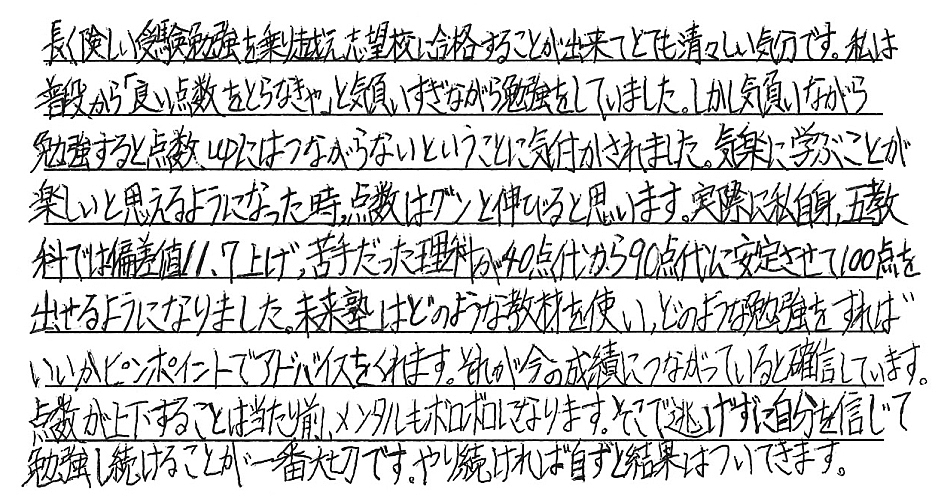 長く険しい受験勉強を乗り越え、志望校に合格することが出来てとても清々しい気分です。私は
普段から「良い点数をとらなきゃ」と気負いすぎながら勉強をしていました。しかし気負いながら
勉強すると点数upにはつながらないということに気付かされました。気楽に学ぶことが
楽しいと思えるようになった時、点数はグンと伸びると思います。実際に私自身、五教
科では偏差値11.7上げ、苦手だった理科が40点代から90点代に安定させて100点を
出せるようになりました。未来塾はどのような教材を使い、どのような勉強をすれば
いいかピンポイントでアドバイスをくれます。それが今の成績につながっていると確信しています。
点数が上下することは当たり前、メンタルもボロボロになります。そこで逃げずに自分を信じて
勉強し続けることが一番大切です。やり続ければ自ずと結果はついてきます。